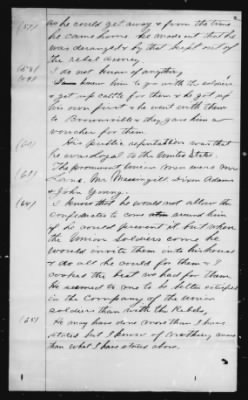 (57) as he could get away & from the time
he came home. He made out that he
was deranged & by that kept out of
the rebel army.
I do not know of anything
I knew him to go with the soldiers
& get up cattle for them & he got up
his own first & he went with them
to Brownsville & they gave him a
voucher for them.
(60) His public reputation was that
he was loyal to the United States.
(61) The prominent Union men were Mr
Mr. Massingill Dixon Adams
& John Young.
(64) I know that he would not allow the
confederates to come around him
if he could prevent it but when
the Union Soldiers come he
would invite them into his house
& do all he could for them & I
cooked the best we had for them.
He seemed to me to be better satisfied
in the Company of the union
soldiers than with the Rebels,
(65) He may have done more than I have
stated but I know of nothing more
than what I have stated above.